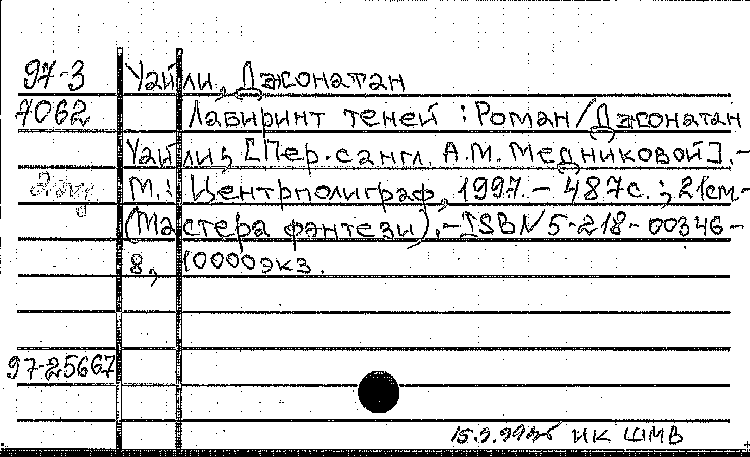 97-3 Уайли, Джонатан
7062 Лабиринт теней : Роман / Джонатан
Уайли; [Пер. с англ. А.М. Медниковой]. -
М.: Центрполиграф, 1997. - 487с. ; 21см -
(Мастера фэнтези). - ISBN 5-218-00346-
8, 10000экз.
97-25667
НК ШМВ